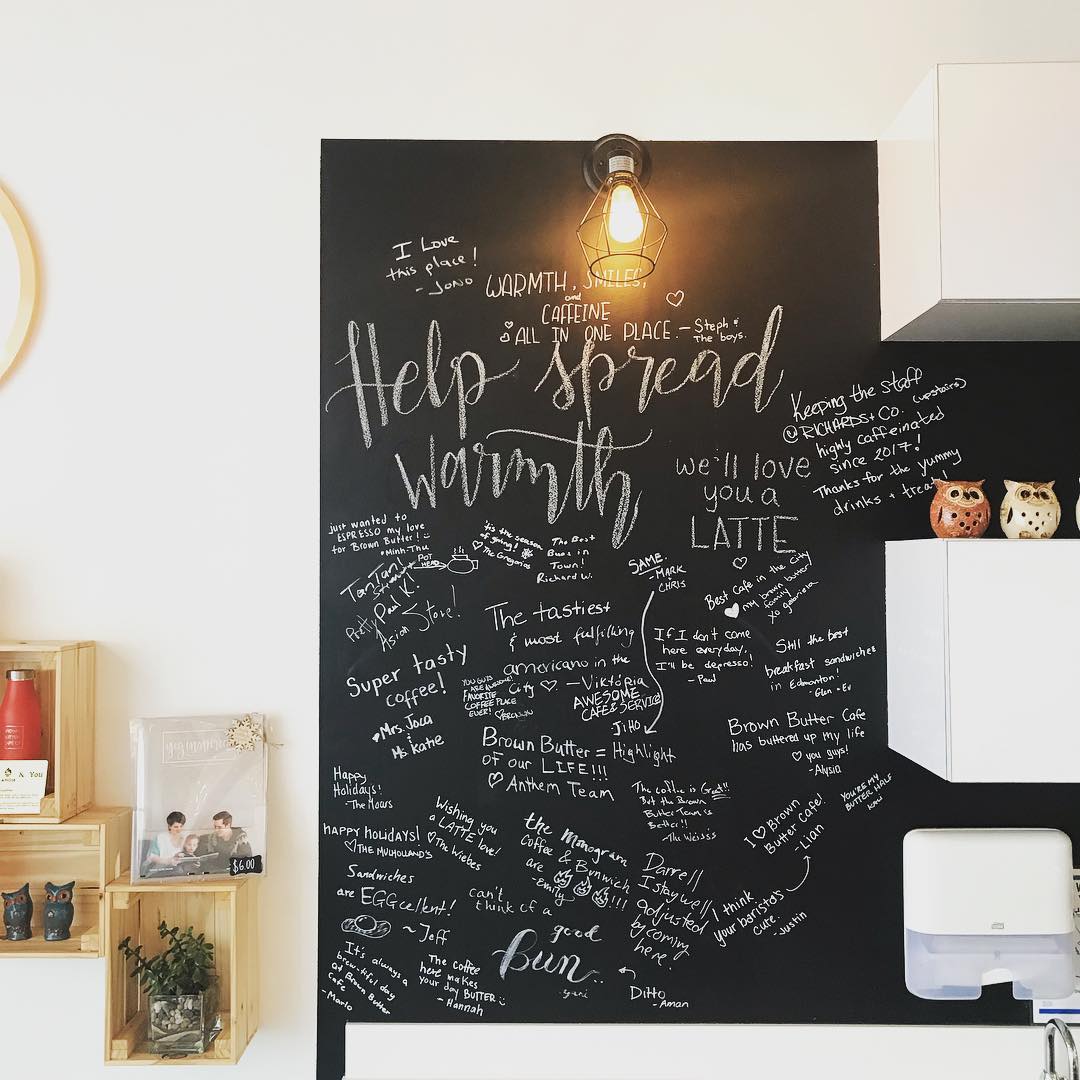 I Love
this place!
- JONO
WARMTH, SMILES,
and
CAFFEINE
ALL IN ONE PLACE. - Steph &
The boys.
Help spread
warmth
we'll love
you a
LATTE
Keeping the staff
@ RICHARDS + Co. (upstairs)
highly caffeinated
since 2017!
Thanks for the yummy
drinks + treats!
just wanted to
ESPRESSO my love
for Brown Butter!
• Minh-Thu
'tis the season
of giving!
The Gregories
The Best
Buns in
Town!
Richard W.
SAME
- MARK
& CHRIS
Best Cafe in the City
my brown butter
family
xo gabriela
TanTan!
POT
HEAD
Pretty Paul K!
Asian Store!
The tastiest
& most fulfilling
americano in the
City ♡. - Viktória
If I don't come
here everyday,
I'll be depresso!
- Paul
Still the best
breakfast sandwiches
in Edmonton!
- Glen + Ev
Super tasty
coffee!
♥Mrs. Joca
&
Ms. Katie
YOU GUYS
ARE AWESOME!
FAVORITE
COFFEE PLACE
EVER!
AWESOME
CAFE & SERVICE
JIHO
Brown Butter = Highlight
of our LIFE!!!
♡ Anthem Team
Brown Butter Cafe
has buttered up my life
♡ you guys!
- Alysia
YOU'RE MY
BUTTER HALF
Happy
Holidays!
- The Maurs
The coffee is Great!!
But the Brown
Butter Team is
Better!!
- The Weiss's
Wishing you
a LATTE love!
♡ The Wiebes
HAPPY HOLIDAYS!
♡ THE MULHOLLAND'S
I ♡ Brown
Butter Cafe!
- Lian
the Monogram
Coffee & Bunwich
are !!!
- emily
Sandwiches
are EGGcellent!
~ Jeff
Darrell
I stay well
adjusted
by coming
here.
I think
your baristas
cute.
- Justin
can't
think of a
good
Bun..
- yuni
Ditto
- Aman
It's always a
brew-tiful day
at Brown Butter
Cafe
- Marlo
The coffee
here makes
your day BUTTER
- Hannah
& You
$6.00